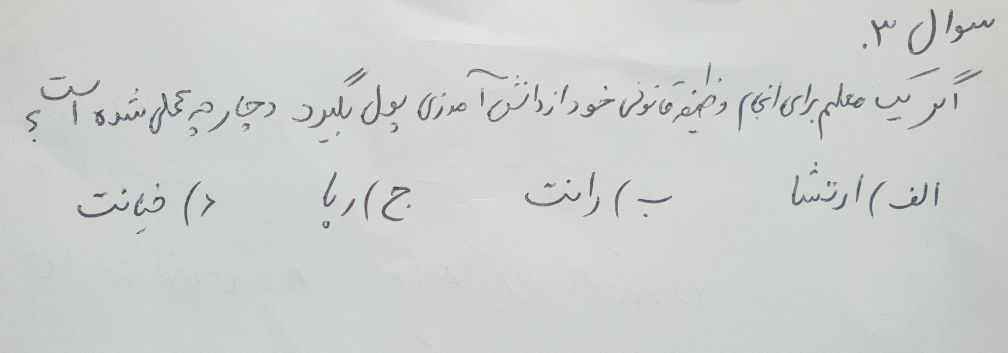 سوال ۳.
اگر یک معلم برای انجام وظیفه قانونی خود از دانش آموزی پول بگیرد دچار چه عملی شده است؟
الف) ارتشا ب) رانت ج) ربا د) خیانت